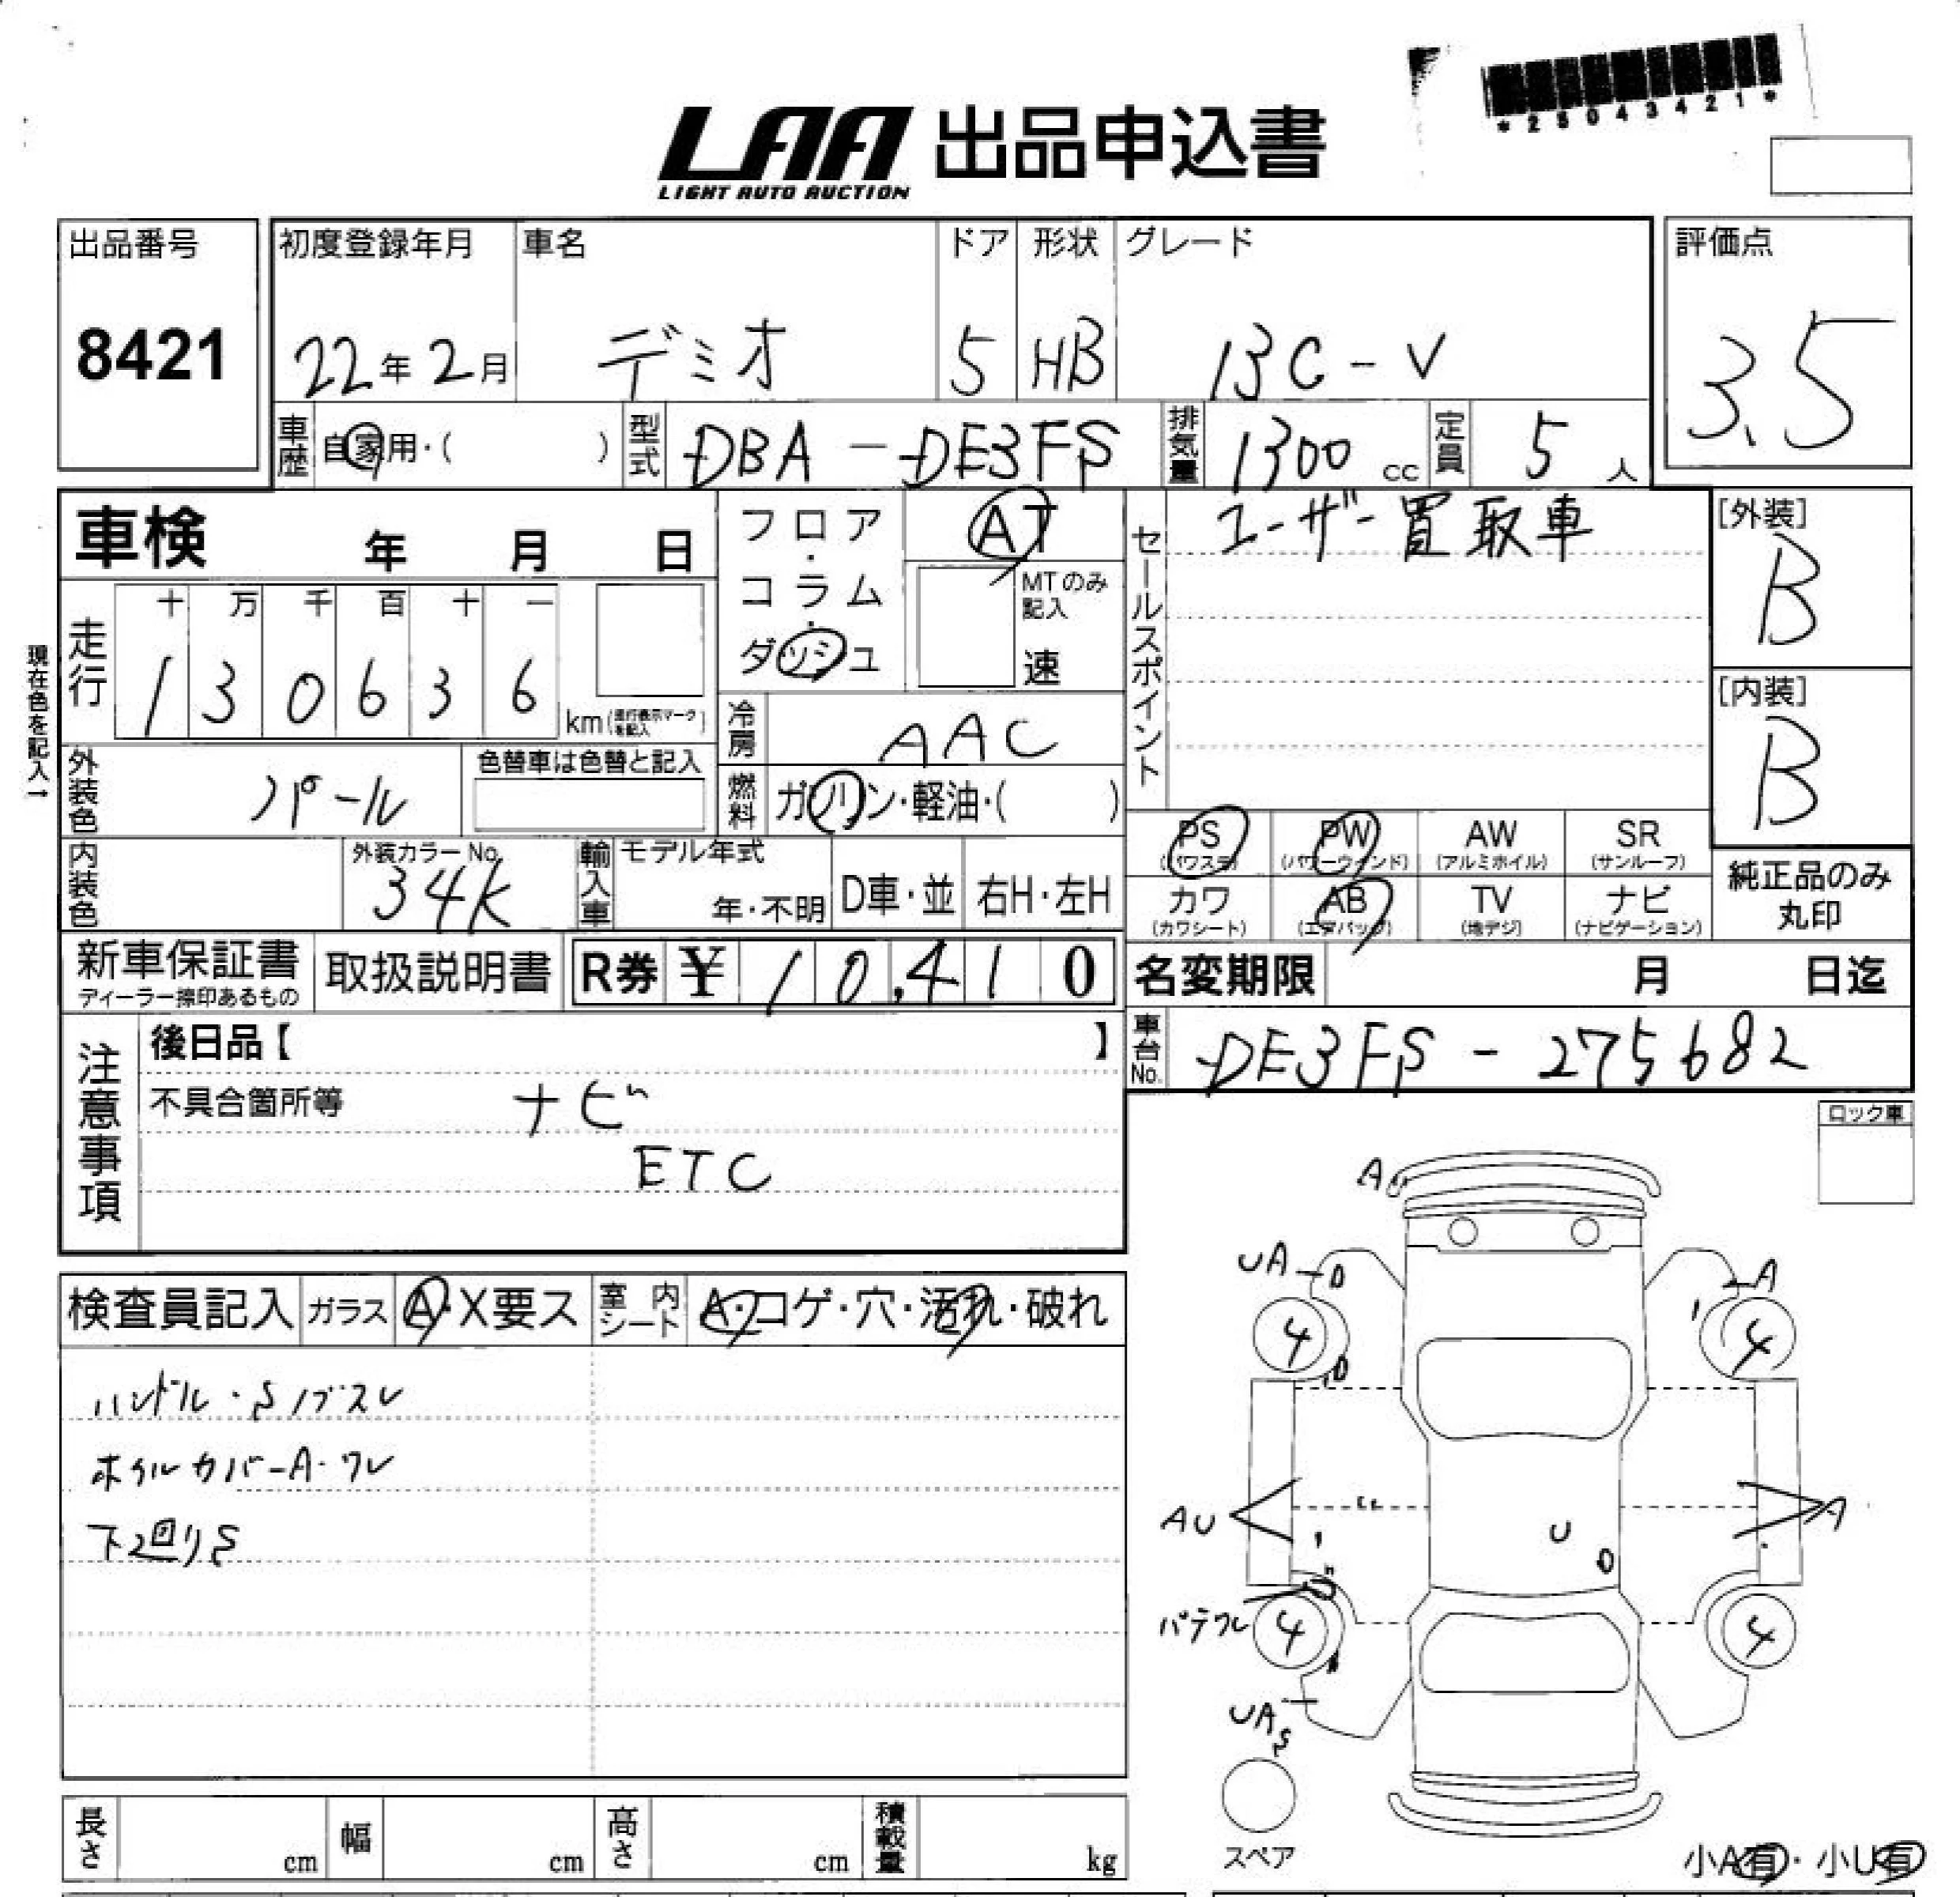 *25043421*
LAA 出品申込書
LIGHT AUTO AUCTION
出品番号 初度登録年月 車名 ドア 形状 グレード 評価点
8421 22年2月 デミオ 5 HB 13C-V 3.5
車歴 自家用・( ) 型式 DBA-DE3FS 排気量 1300 cc 定員 5 人
車検 年 月 日
フロア・コラム・ダッシュ
AT
MTのみ記入
速
セールスポイント
ユーザー買取車
[外装]
B
[内装]
B
現在色を記入→
走行
十 万 千 百 十 一
1 3 0 6 3 6 km(走行表示マークを記入)
冷房 AAC
外装色 パール 色替車は色替と記入
燃料 ガソリン・軽油・( )
PS (パワステ) PW (パワーウィンド) AW (アルミホイル) SR (サンルーフ)
カワ (カワシート) AB (エアバッグ) TV (地デジ) ナビ (ナビゲーション)
純正品のみ丸印
内装色 外装カラーNo. 34K 輸入車 モデル年式 年・不明 D車・並 右H・左H
新車保証書 ディーラー捺印あるもの 取扱説明書 R券 ¥ 10,410
名変期限 月 日迄
車台No. DE3FS-275682
注意事項
後日品【 】
不具合箇所等 ナビ
ETC
ロック車
検査員記入 ガラス A・X要ス 室内シート A・コゲ・穴・汚れ・破れ
ハンドル・Sノブスレ
ホイルカバーA・ワレ
下回りS
A
UA
A
4
4
AU
U
A
パテワレ
4
4
UAS
スペア
小A有・小U有
長さ cm 幅 cm 高さ cm 積載量 kg